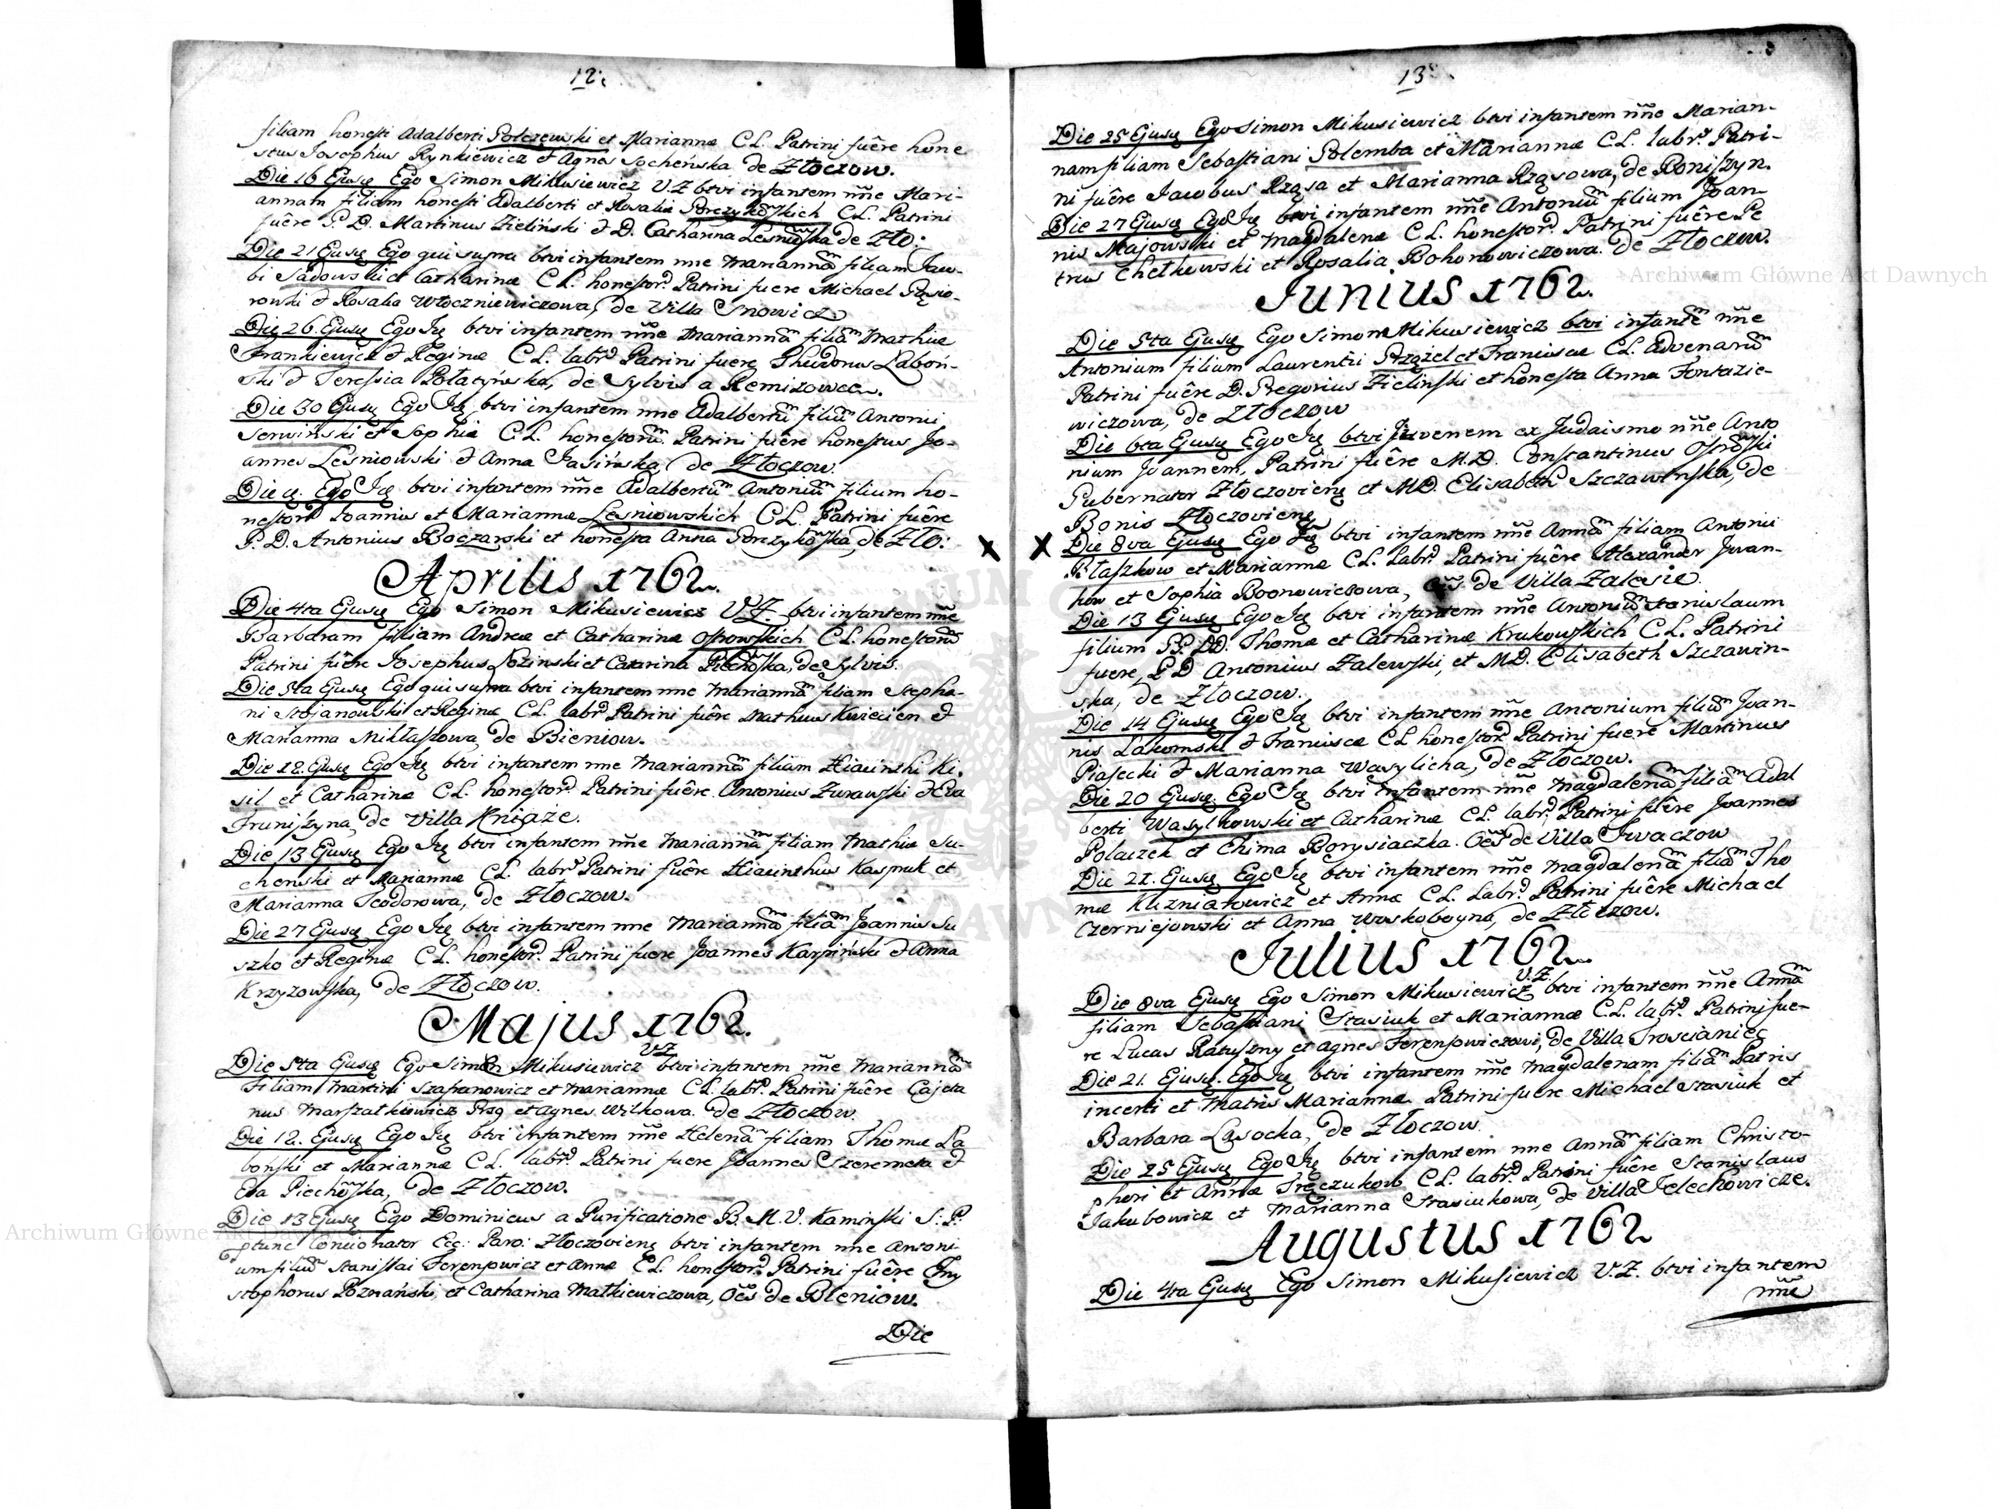 12.
filiam honesti Adalberti Polczewski et Mariannæ C.L. Patrini fuêre hone
stus Josephus Rynkiewicz et Agnes Socheńska de Złoczow.
Die 16 Ejusq Ego Simon Mikusiewicz V.Z. btvi infantem nñe Mari-
annam filiam honesti Adalberti et Rosaliæ C.L. Patrini
fuêre P. D. Martinus Zieliński et D. Catharina Lesniowska de Zło:
Die 21 Ejusq Ego qui supra btvi infantem nne Mariannam filiam Jaco-
bi Sadowski et Catharinæ C.L. honestor. Patrini fuere Michael
rowski et Rosalia Włoczniewiczowa, de Villa Snowicz
Die 26. Ejusq Ego Iq btvi infantem nñe Mariannam filiam Mathiæ
Frankiewicz et Reginæ C.L. labr. Patrini fuere Theodorus Laboń-
ski et Teressia Połatyńska, de Sylvis a Remizowce.
Die 30 Ejusq Ego Iq btvi infantem nne Adalbertum filium Antonii
Serwiński et Sophiæ C.L. honestorum Patrini fuêre honestus Jo-
annes Lesniowski et Anna Jasińska, de Złoczow.
Die q. Ego Iq btvi infantem nñe Adalbertum Antonium filium ho-
nestor. Ioannis et Mariannæ Lesniowskich C.L. Patrini fuêre
P. D. Antonius Boczarski et honesta Anna de Zło:
Aprilis 1762.
Die 4ta Ejusq Ego Simon Mikusiewicz V.Z. btvi infantem nñe
Barbaram filiam Andreæ et Catharinæ Ostrowskich C.L. honestorum
Patrini fuêre Josephus Łozinski et Catarina Piechowska, de Sylvis.
Die 5ta Ejusq Ego qui supra btvi infantem nne Mariannam filiam Stepha-
ni Stojanowski et Reginæ C.L. labr. Patrini fuêre Matheus Kwiecien et
Marianna Mikłaszowa, de Bieniow.
Die 12. Ejusq Ego Iq btvi infantem nne Mariannam filiam Hiacinthi Ki-
sil et Catharinæ C.L. honestor. Patrini fuêre Antonius Zurawski et Eva
Truniszyna, de Villa Kniaże.
Die 13 Ejusq Ego Iq btvi infantem nñe Mariannam filiam Mathiæ Su-
chenski et Mariannæ C.L. labr. Patrini fuêre Hiacinthus Kaspruk et
Marianna Teodorowa, de Złoczow.
Die 27 Ejusq Ego Iq btvi infantem nne Mariannam filiam Joannis Su-
szko et Reginæ C.L. honestor. Patrini fuere Joannes Karpiński et Anna
Krzyzowska, de Złoczow.
Majus 1762.
Die 5ta Ejusq Ego Simon Mikusiewicz V.Z. btvi infantem nñe Mariannam
filiam Martini Szafranowicz et Mariannæ C.L. labr. Patrini fuêre Cajeta
nus Marszałkiewicz et Agnes Wilkowa. de Złoczow.
Die 12. Ejusq Ego Iq btvi infantem nñe Helenam filiam Thomæ La
boński et Mariannæ C.L. labr. Patrini fuere Joannes Szeremeta et
Eva Piechowska, de Złoczow.
Die 13 Ejusq Ego Dominicus a Purificatione B.M.V. Kaminski S.P.
ptunc Concionator Ecc: Paro: Złoczovienq btvi infantem nne Antoni
um filium Stanislai Ferensowicz et Annæ C.L. honestor. Patrini fuêre Chry
stophorus Poznański, et Catharina Matkiewiczowa, Oẽs de Bieniow.
Die
13.
Die 25 Ejusq Ego Simon Mikusiewicz btvi infantem nñe Marian-
nam filiam Sebastiani Golemba et Mariannæ C.L. labr. Patri-
ni fuêre Jacobus Rząsa et Marianna Rząsowa, de Boniszyn.
Die 27 Ejusq Ego Iq btvi infantem nñe Antonium filium Joan-
nis Majowski et Magdalenæ C.L. honestor. Patrini fuêre Pe
trus Chełkowski et Rosalia Bohonowiczowa. de Złoczow.
Junius 1762.
Die 5ta Ejusq Ego Simon Mikusiewicz btvi infantem nñe
Antonium filium Laurentii et Franciscæ C.L. Advenarum
Patrini fuêre D. Gregorius Zieliński et honesta Anna Fontazie-
wiczowa, de Złoczow
Die 6ta Ejusq Ego Iq btvi Juvenem ex Judaismo nñe Anto
nium Joannem, Patrini fuêre M.D. Constantinus Ostrowski
Gubernator Złoczovienq et MD. Elisabeth Szczawinska, de
Bonis Złoczovienq
Die 8va Ejusq Ego Iq btvi infantem nñe Annam filiam Antonii
Błaszkow et Mariannæ C.L. labr. Patrini fuêre Alexander Iwan-
kow et Sophia Boonowiczowa, Oẽs de Villa Zalesie.
Die 13 Ejusq Ego Iq btvi infantem nñe Antonium Stanislaum
filium PP. DD. Thomæ et Catharinæ Krukowskich C.L. Patrini
fuere, P.D. Antonius Zalewski, et MD. Elisabeth Szczawin-
ska, de Złoczow.
Die 14 Ejusq Ego Iq btvi infantem nñe Antonium filium Joan-
nis Lakomski et Franciscæ C.L. honestor. Patrini fuere Martinus
Piasecki et Marianna Wasylicha, de Złoczow.
Die 20 Ejusq Ego Iq btvi infantem nñe Magdalenam filiam Adal
berti Wasylkowski et Catharinæ C.L. labr. Patrini fuêre Joannes
Polaczek et Chima Borysiaczka. Oẽs de Villa Jwaczow
Die 22. Ejusq Ego Iq btvi infantem nñe Magdalenam filiam Tho
mæ Kuzniarowicz et Annæ C.L. Labr. Patrini fuêre Michael
Czerniejowski et Anna Woskoboyna, de Złoczow.
Julius 1762.
Die 8va Ejusq Ego Simon Mikusiewicz V.Z. btvi infantem nñe Annam
filiam Sebastiani Stasiuk et Mariannæ C.L. labr. Patrini fue-
re Lucas Ratuszny et Agnes Ferensowiczowi, de Villa Troscianiec
Die 21. Ejusq. Ego Iq btvi infantem nñe Magdalenam filiam Patris
incerti et Matris Mariannæ Patrini fuêre Michael Stasiuk et
Barbara Lasocka, de Złoczow.
Die 25 Ejusq Ego Iq btvi infantem nne Annam filiam Christo-
phori et Annæ C.L. labr. Patrini fuêre Stanislaus
Jakubowicz et Marianna Stasiukowa, de Villa Jelechowicze.
Augustus 1762
Die 4ta Ejusq Ego Simon Mikusiewicz V.Z. btvi infantem
nñe
Archiwum Główne Akt Dawnych
Archiwum Główne Akt Dawnych